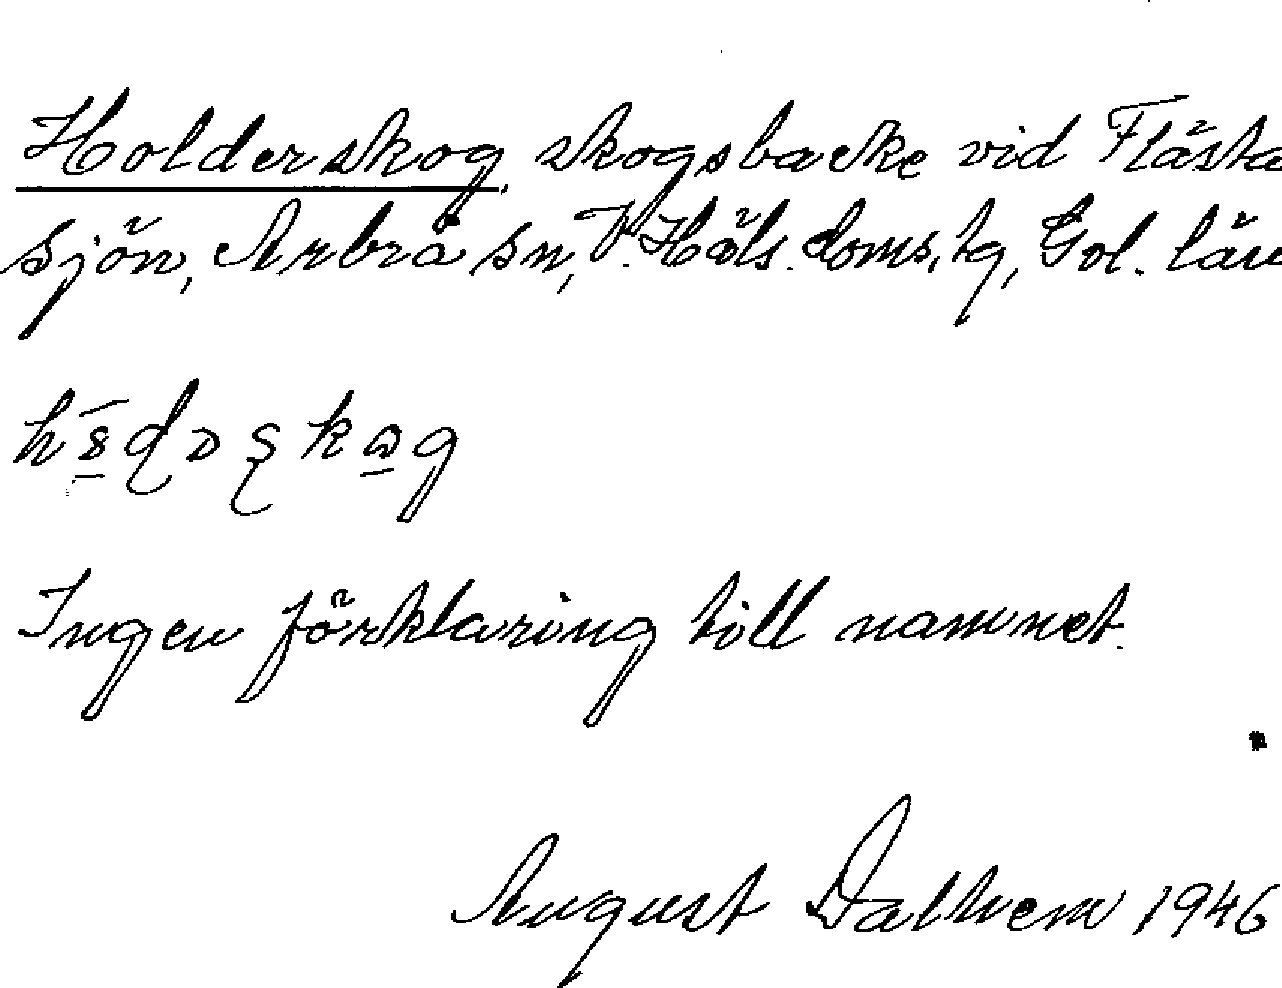 Holderskog, skogsbacke vid Flästa
sjön, Arbrå sn, V. Häls. doms. tg, Gäl. län
Ingen förklaring till namnet.
August Dalhem 1946